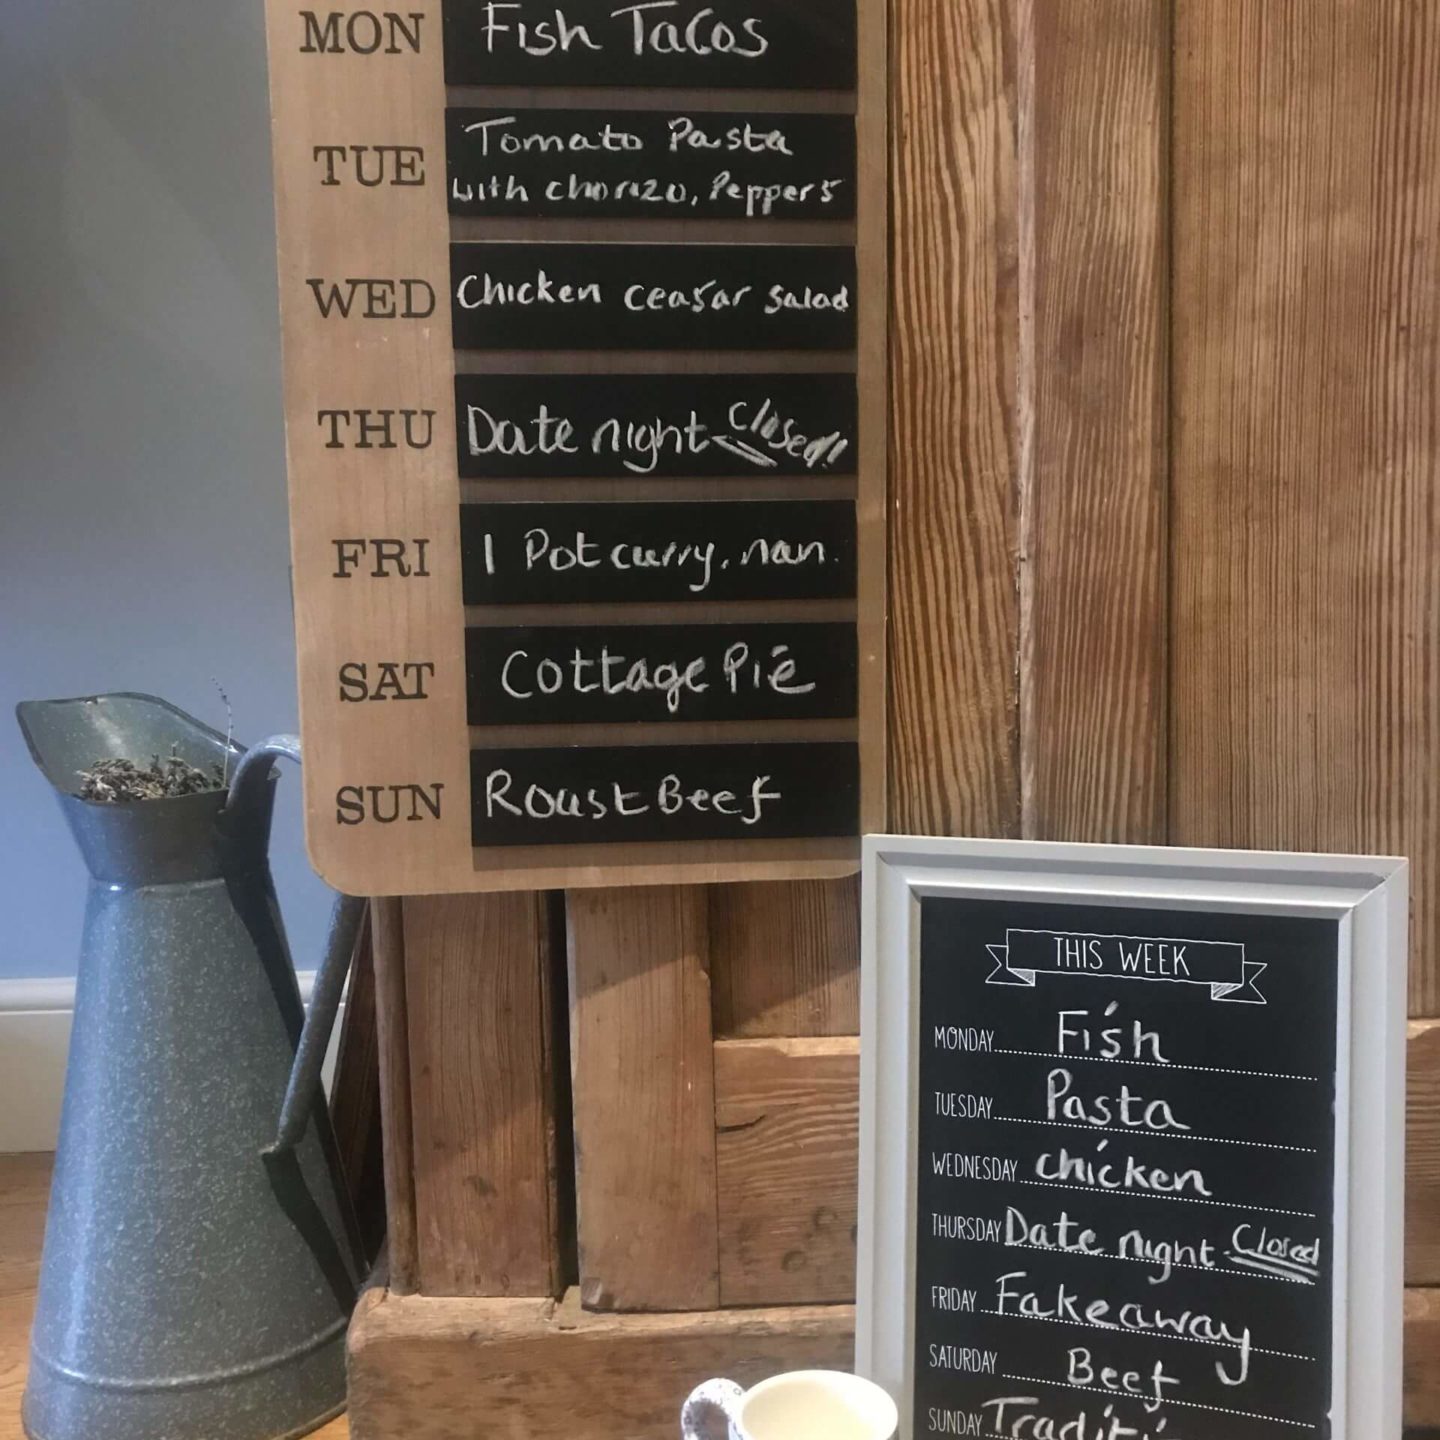 MON Fish Tacos
TUE Tomato Pasta
with chorizo, Peppers
WED Chicken ceasar salad
THU Date night Closed!!
FRI 1 Pot curry, nan.
SAT Cottage Pie
SUN Roast Beef
THIS WEEK
MONDAY Fish
TUESDAY Pasta
WEDNESDAY chicken
THURSDAY Date night. Closed
FRIDAY Fakeaway
SATURDAY Beef
SUNDAY